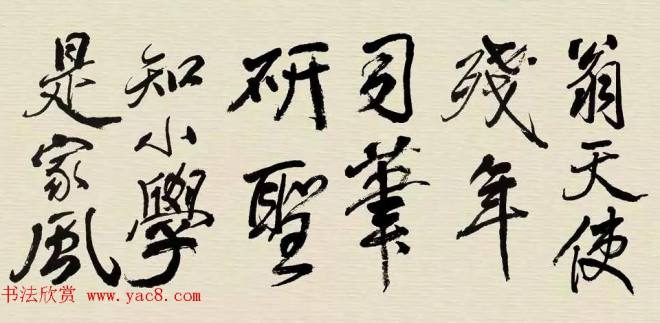 翁天使
殘年
司筆
研聖
知小學
是家風
书法欣赏 www.yac8.com